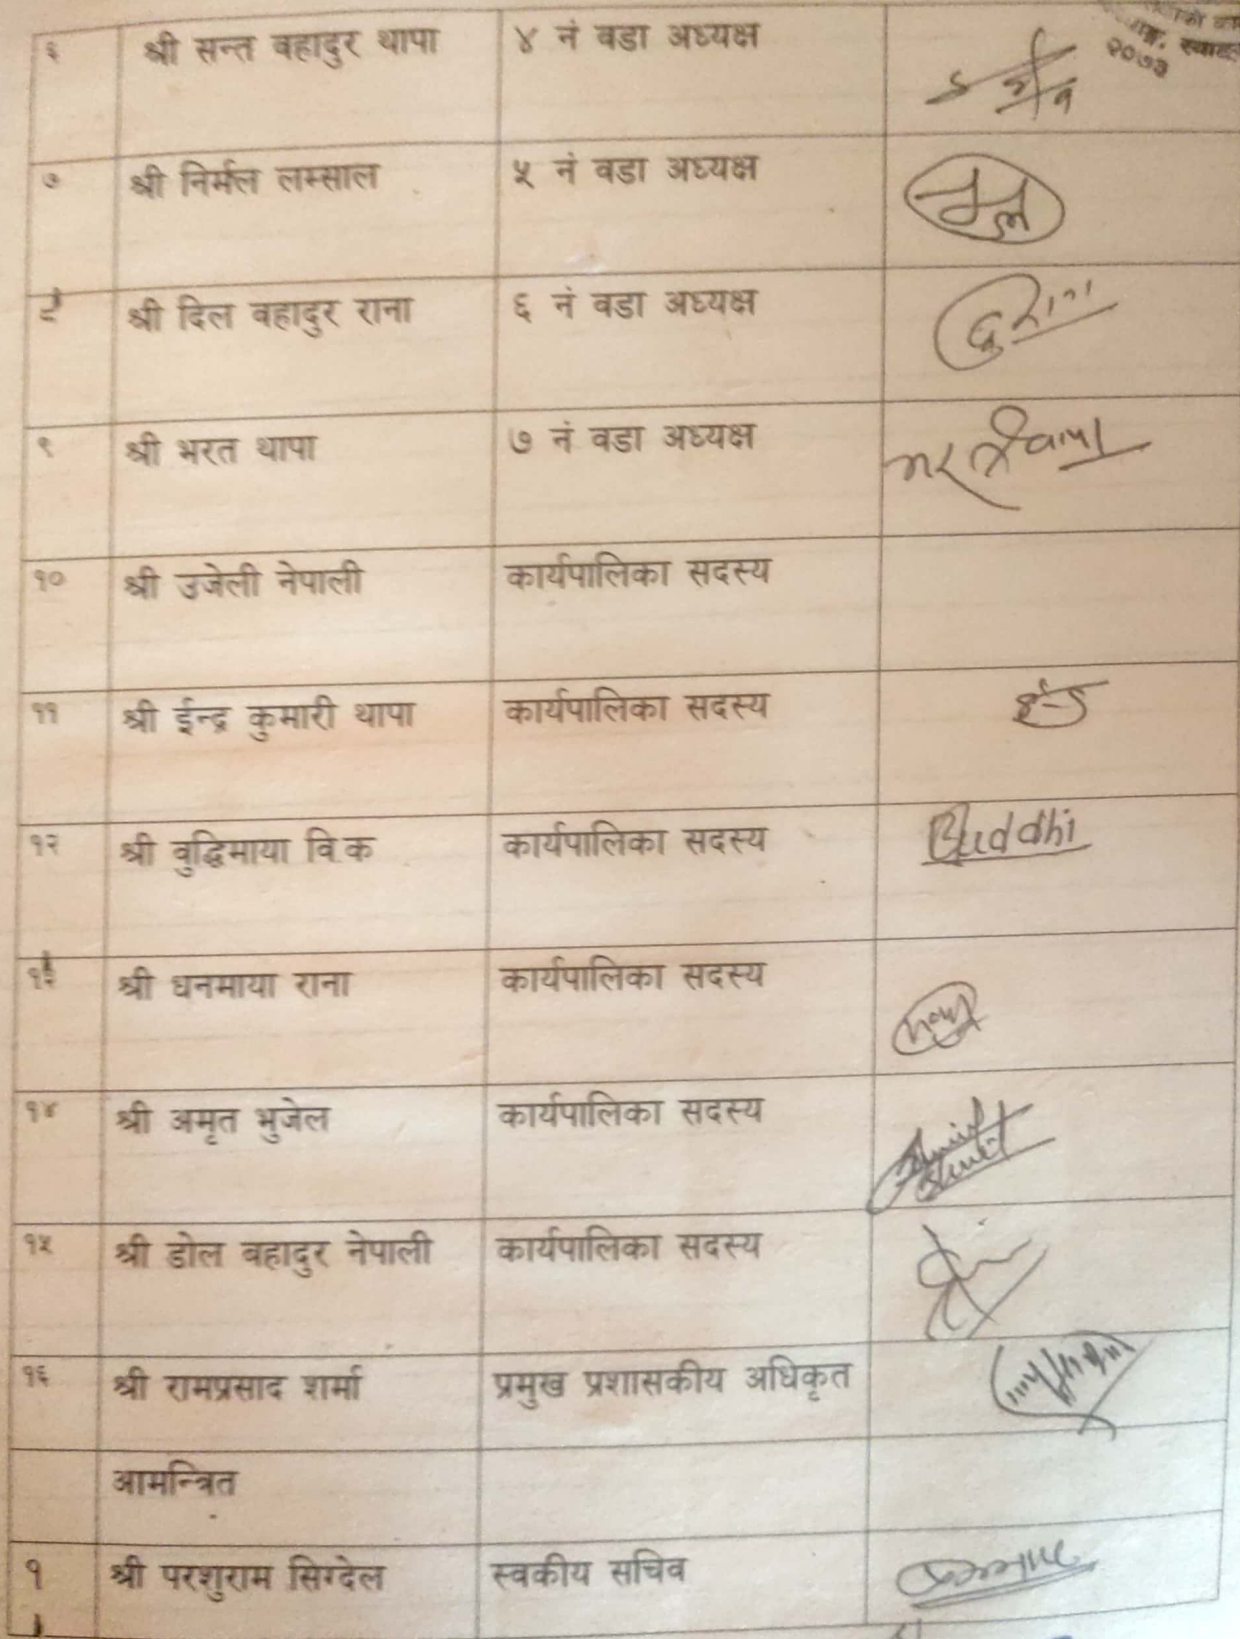 २०७३
६ श्री सन्त वहादुर थापा ४ नं वडा अध्यक्ष
७ श्री निर्मल लम्साल ५ नं वडा अध्यक्ष
८ श्री दिल वहादुर राना ६ नं वडा अध्यक्ष
९ श्री भरत थापा ७ नं वडा अध्यक्ष
१० श्री उजेली नेपाली कार्यपालिका सदस्य
११ श्री ईन्द्र कुमारी थापा कार्यपालिका सदस्य
१२ श्री वुद्धिमाया वि.क कार्यपालिका सदस्य Buddhi
१३ श्री धनमाया राना कार्यपालिका सदस्य
१४ श्री अमृत भुजेल कार्यपालिका सदस्य
१५ श्री डोल वहादुर नेपाली कार्यपालिका सदस्य
१६ श्री रामप्रसाद शर्मा प्रमुख प्रशासकीय अधिकृत
आमन्त्रित
१ श्री परशुराम सिग्देल स्वकीय सचिव